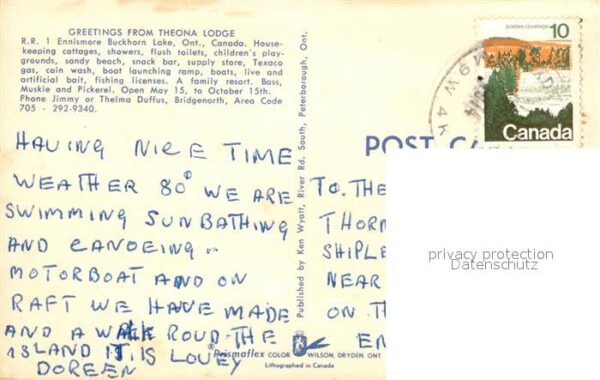 GREETINGS FROM THEONA LODGE
R.R. 1 Ennismore Buckhorn Lake, Ont., Canada. House-
keeping cottages, showers, flush toilets, children's play-
grounds, sandy beach, snack bar, supply store, Texaco
gas, coin wash, boat launching ramp, boats, live and
artificial bait, fishing licenses. A family resort. Bass,
Muskie and Pickerel. Open May 15, to October 15th.
Phone Jimmy or Thelma Duffus, Bridgenorth, Area Code
705 - 292-9340.
HAVING NICE TIME
WEATHER 80° WE ARE
SWIMMING SUNBATHING
AND CANOEING
MOTORBOAT AND ON
RAFT WE HAVE MADE
AND A WALK ROUD THE
ISLAND IT IS LOVEY
DOREEN
Published by Ken Wyatt, River Rd. South, Peterborough, Ont.
Prismaflex COLOR WILSON, DRYDEN, ONT
Lithographed in Canada
postes/postage 10
Canada
POST CA
TO. THE
THORN
SHIPLE
NEAR
ON TH
EN
privacy protection
Datenschutz